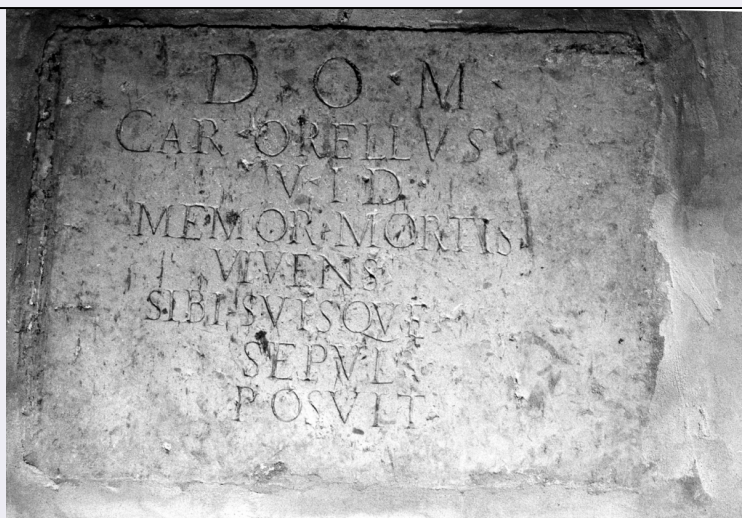 D·O·M
CAR·ORELLVS
V·I·D·
MEMOR·MORTIS
VIVENS
SIBI·SVISQVE
SEPVL
POSVIT